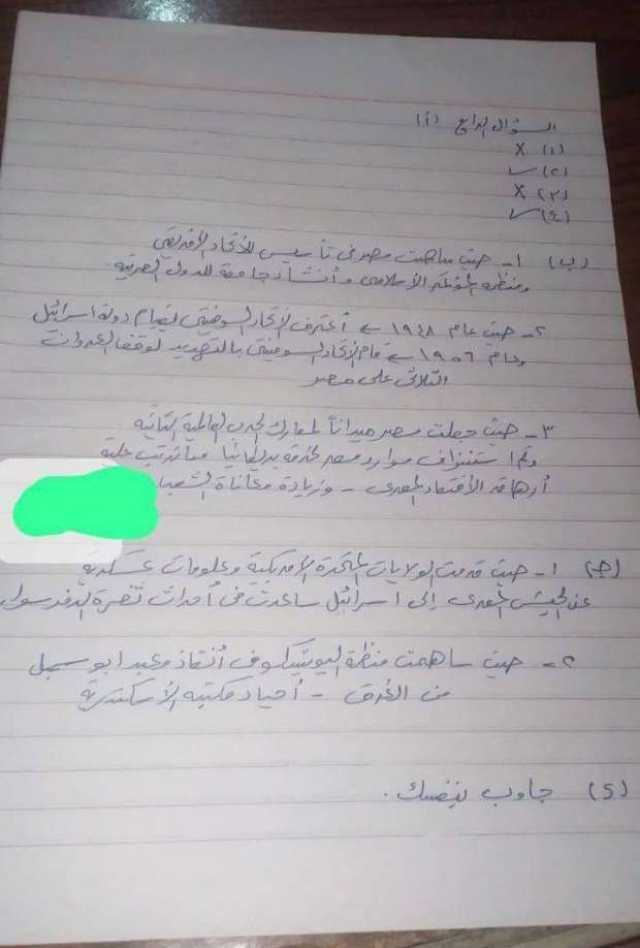 السؤال الرابع (أ)
(١) X
(٢) ✓
(٣) X
(٤) ✓
(ب) ١ـ حيث ساهمت مصر فى تأسيس الاتحاد الأفريقى
ومنظمة المؤتمر الإسلامى وأنشاء جامعة الدول العربية
٢ـ حيث عام ١٩٤٨ ← أعترف الاتحاد السوفيتى بقيام دولة اسرائيل
وعام ١٩٥٦ ← قام الاتحاد السوفيتى بالتهديد لوقف العدوان
الثلاثى على مصر
٣ـ حيث جعلت مصر ميداناً لمعارك الحرب العالمية الثانية
وتم استنزاف موارد مصر لخدمة بريطانيا مما ترتب علية
أرهاق الأقتصاد المصرى - وزيادة معاناة الشعب
(جـ) ١ـ حيث قدمت الولايات المتحدة الأمريكية معلومات عسكرية
عن الجيش المصرى إلى اسرائيل ساعدت فى أحداث ثغرة الدفرسوار
٢ـ حيث ساهمت منظمة اليونيسكو فى أنقاذ معبد ابو سمبل
من الغرق - أحياء مكتبة الأسكندرية
(د) جاوب بنفسك .